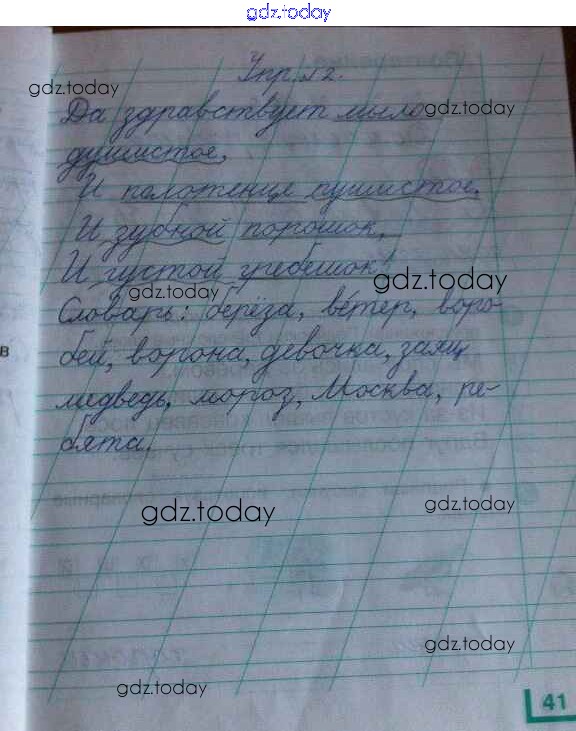 gdz.today
Упр. 12.
gdz.today
Да здравствует мыло
gdz.today
душистое,
И полотенце пушистое.
И зубной порошок,
И густой гребешок!
gdz.today
gdz.today
Словарь: берёза, ве́тер, воро-
бей, ворона, девочка, заяц
в
медведь, мороз, Москва, ре-
бята.
gdz.today
gdz.today
gdz.today
gdz.today
41